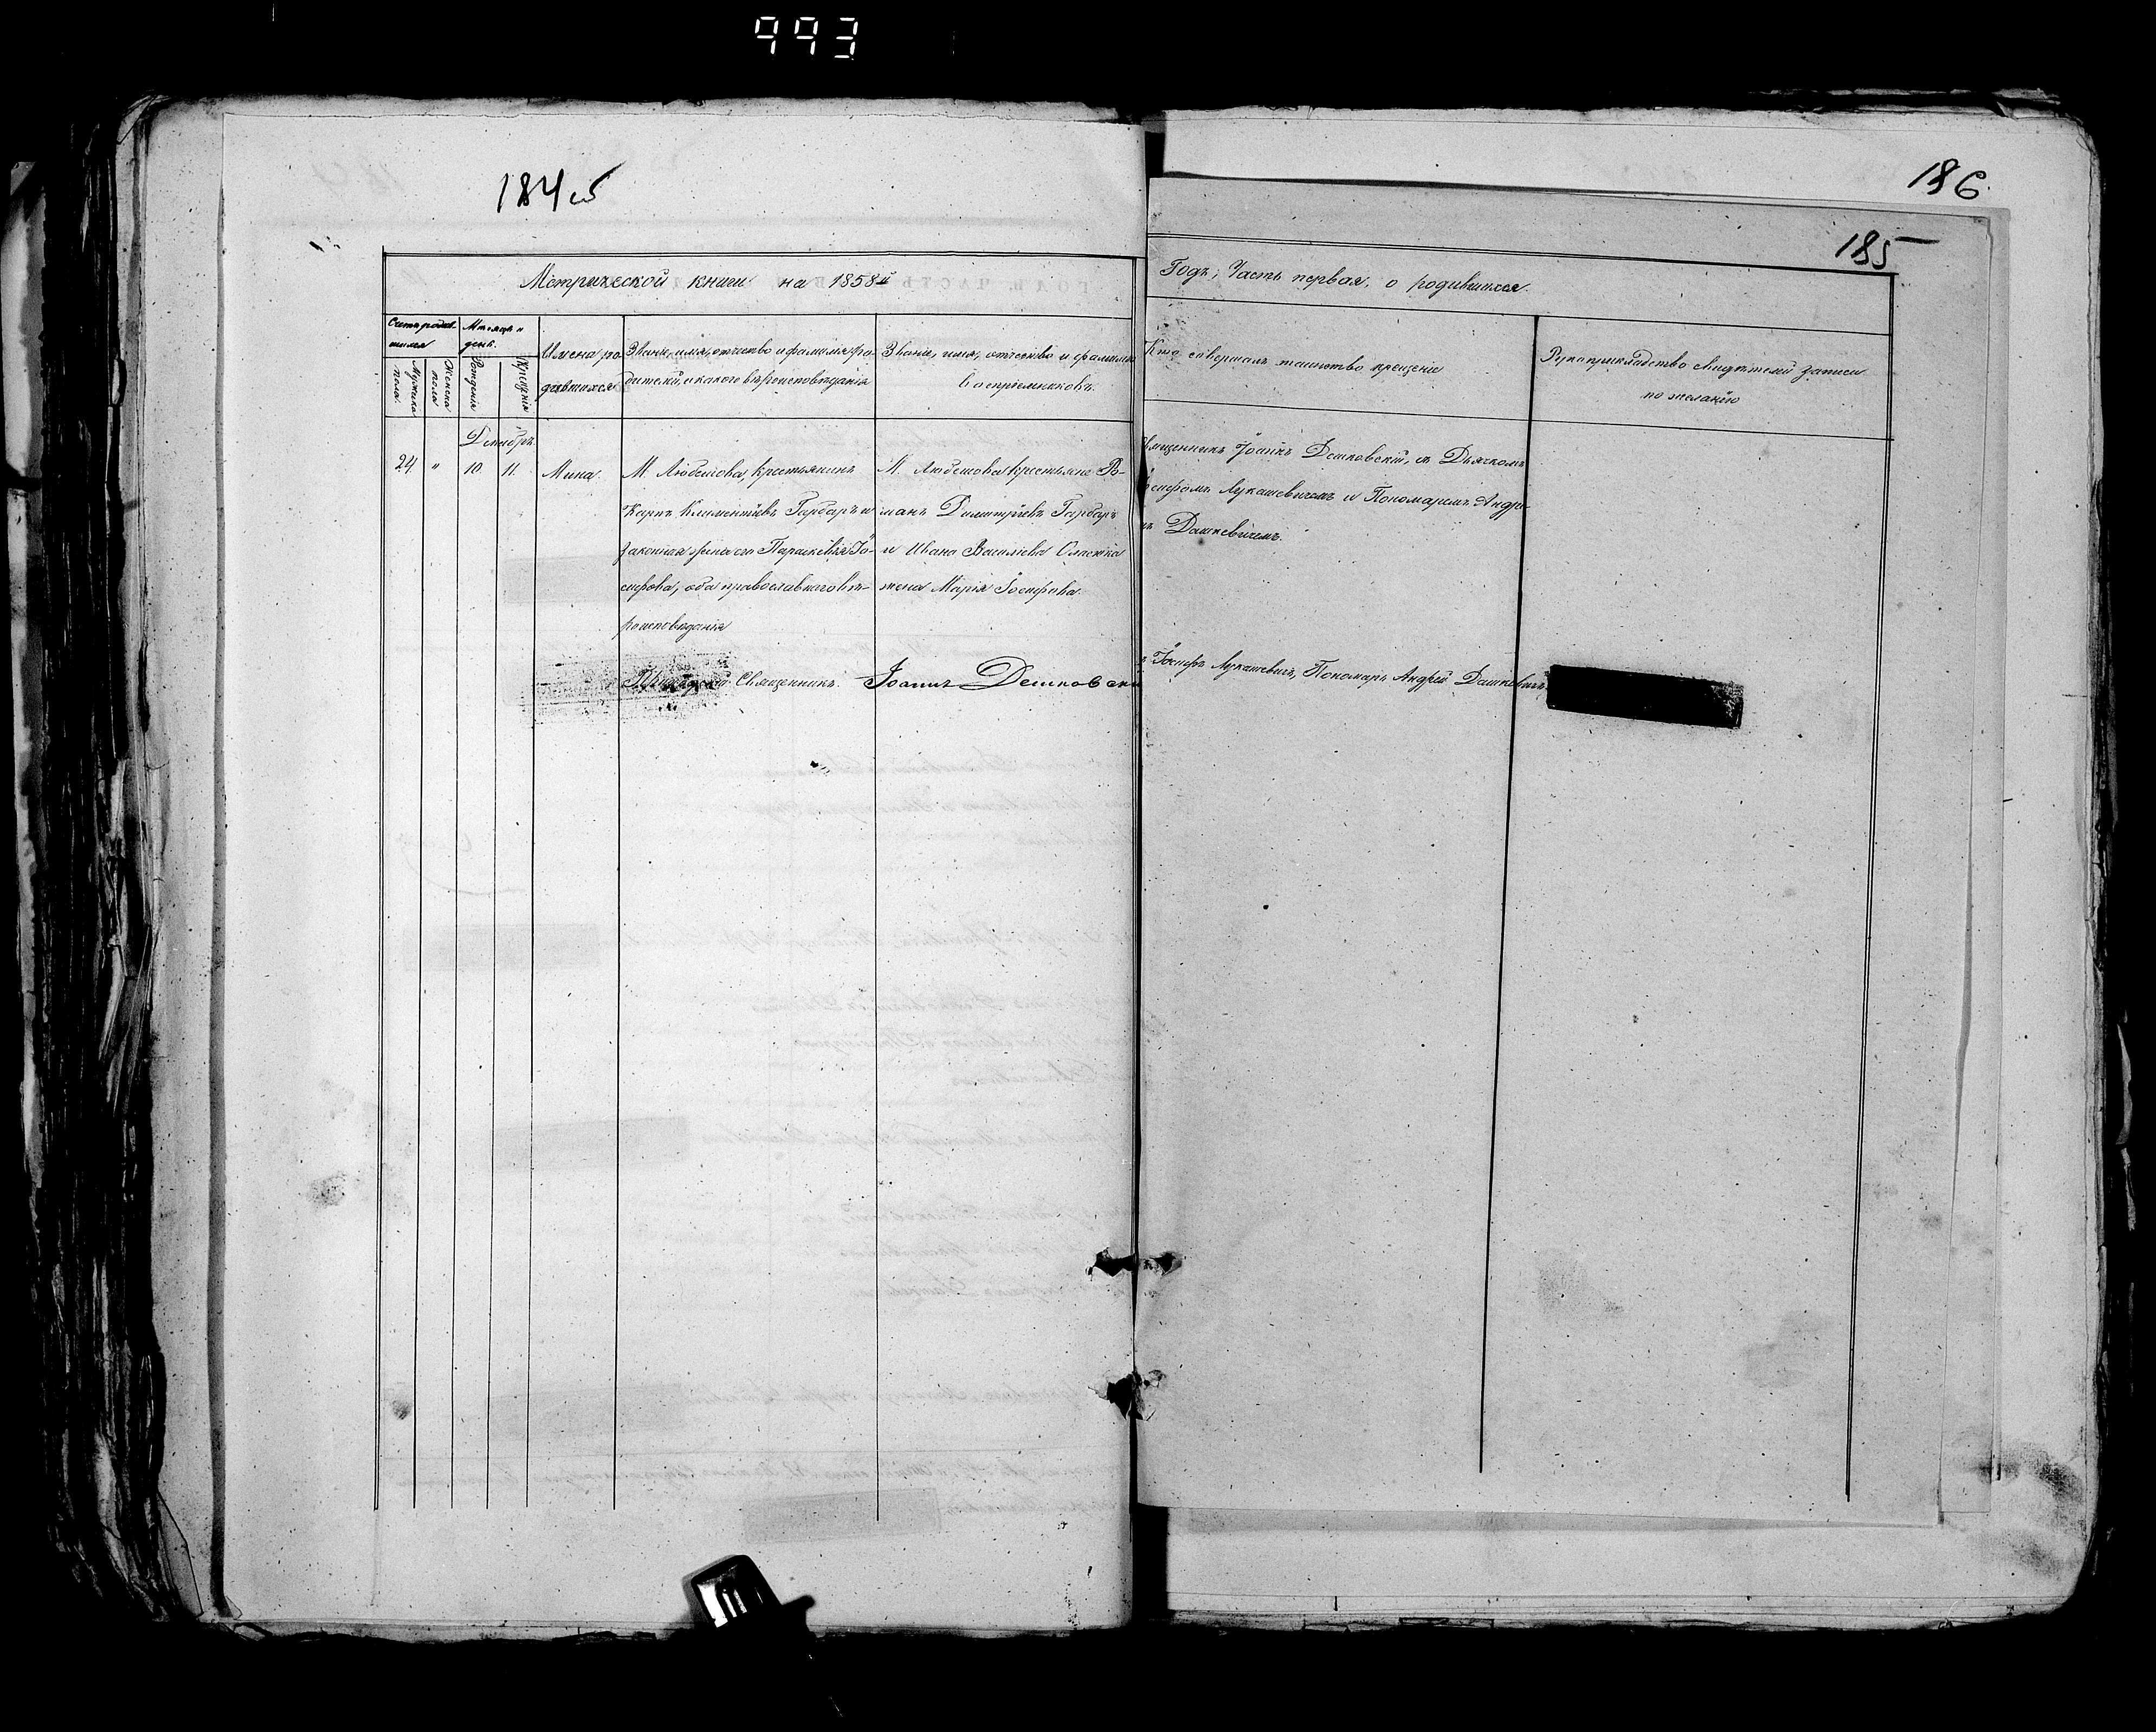 993
184 об
186.
185
Метрической книги на 1858й
Годъ, Часть первая, о родившихся.
Счетъ родив-
шихся
Мужеска
пола.
Женска
пола
Мѣсяцъ и
день.
Рожденія
Крещенія
Имена ро-
дившихся
Званіе, имя, отчество и фамилія ро-
дителей, и какого вѣроисповѣданія
Званіе, имя, отчество и фамилія
воспріемниковъ.
Кто совершалъ таинство крещенія
Рукоприкладство свидѣтелей записи
по желанію
Декабрь.
24 " 10. 11. Мина.
М. Любешова, крестьянинъ
Карпъ Климентіевъ Гарбаръ и
законная жена его Параскевія Іо-
сифова, оба православнаго вѣ-
роисповѣданія
М. Любешова крестьяне Ро-
манъ Димитріевъ Гарбаръ
и Ивана Василіева
жена Марія Іосифова.
Священникъ Іоаннъ Дешковскій, съ Дьячкомъ
Іосифомъ Лукашевичемъ и Пономаремъ Андре-
емъ Дашкевичемъ.
Священникъ Іоаннъ Дешковскій
Іосифъ Лукашевичъ, Пономарь Андрей Дашкевичъ